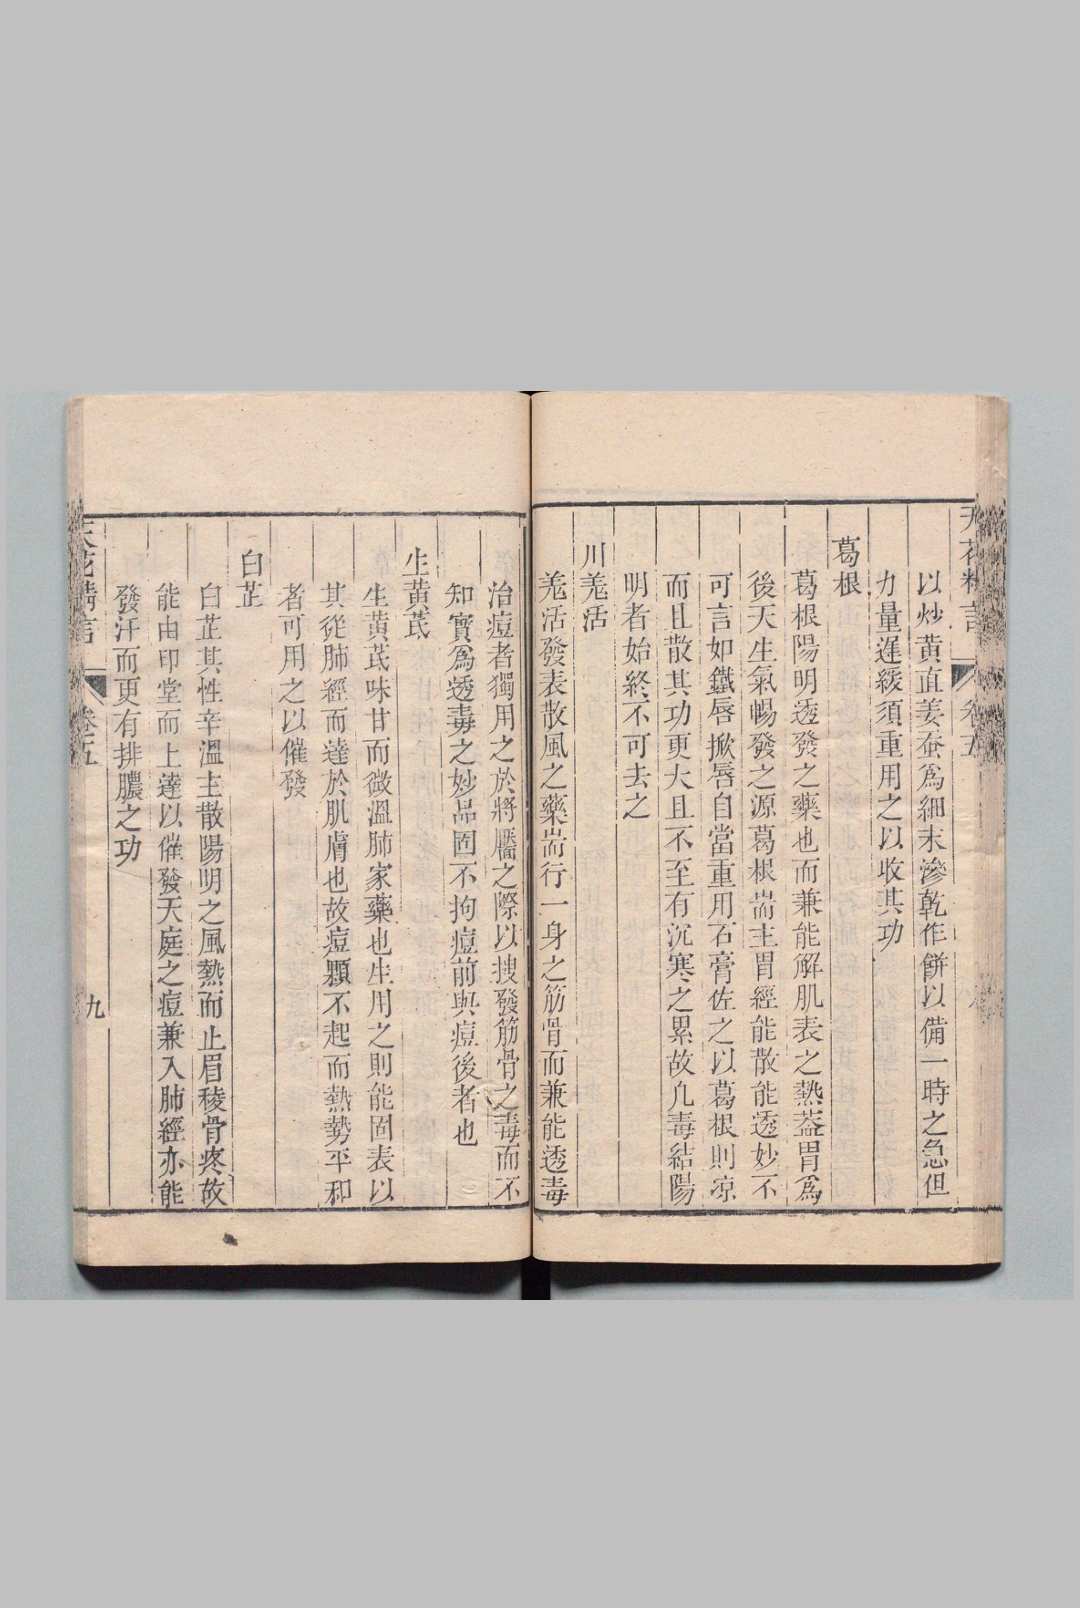 天花精言 卷五
以炒黄直姜蚕為細末滲乾作餅以備一時之急但
力量遲緩須重用之以收其功
葛根
葛根陽明透發之藥也而兼能解肌表之熱葢胃為
後天生氣暢發之源葛根耑主胃經能散能透妙不
可言如鐵唇掀唇自當重用石膏佐之以葛根則凉
而且散其功更大且不至有沉寒之累故凢毒結陽
明者始終不可去之
川羗活
羗活發表散風之藥耑行一身之筋骨而兼能透毒
治痘者獨用之於將靨之際以搜發筋骨之毒而不
知實為透毒之妙品固不拘痘前與痘後者也
生黄茋
生黄茋味甘而微溫肺家藥也生用之則能固表以
其從肺經而達於肌膚也故痘顆不起而熱勢平和
者可用之以催發
白芷
白芷其性辛溫主散陽明之風熱而止眉稜骨疼故
能由印堂而上達以催發天庭之痘兼入肺經亦能
發汗而更有排膿之功
天花精言 卷五 九